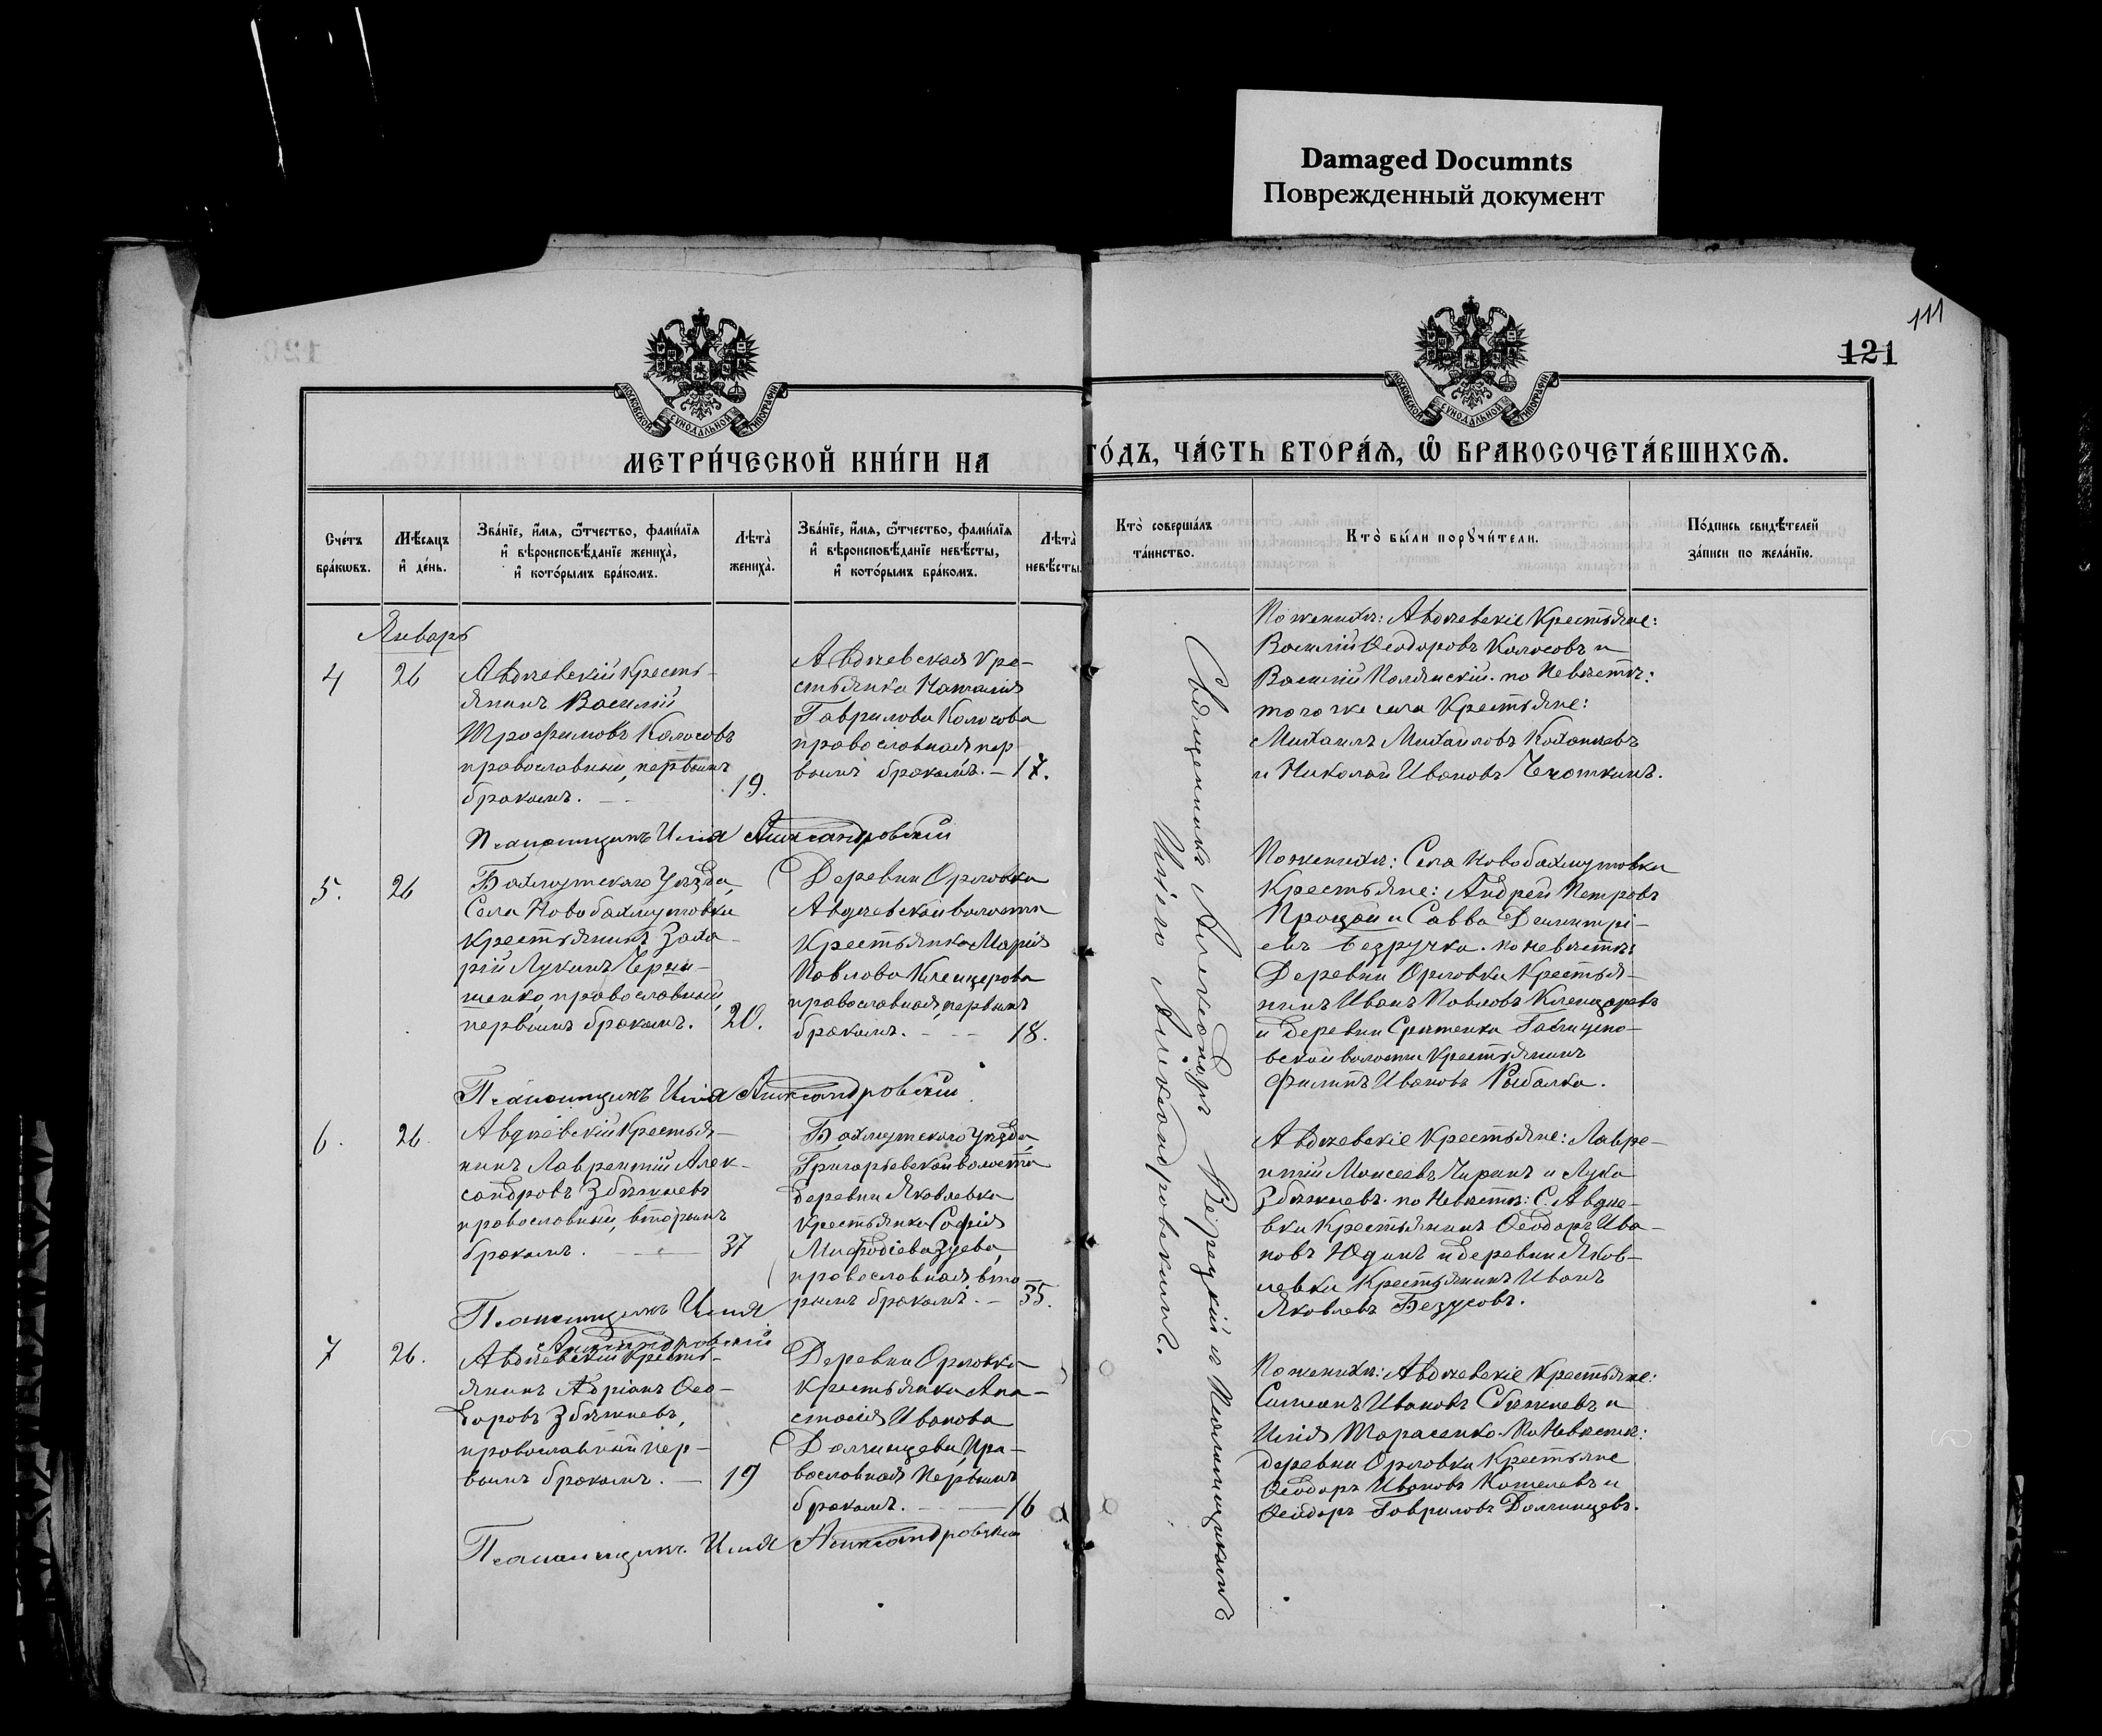 Damaged Documnts
Поврежденный документ
111
121
МОСКОВСКОЙ СѴНОДАЛЬНОЙ ТИПОГРАФІИ
МОСКОВСКОЙ СѴНОДАЛЬНОЙ ТИПОГРАФІИ
МЕТРИ́ЧЕСКОЙ КНИ́ГИ НА
ГО́ДЪ, ЧА́СТЬ ВТОРА́Ѧ, Ѽ БРАКОСОЧЕТА́ВШИХСѦ.
Сче́тъ
бра́кѡвъ.
Мѣ́сяцъ
и҆ де́нь.
Зва́нїе, и҆́мя, ѻ҆́тчество, фами́лїя
и҆ вѣроисповѣ́данїе жениха̀,
и҆ кото́рымъ бра́комъ.
Лѣ́та̀
жениха̀.
Зва́нїе, и҆́мя, ѻ҆́тчество, фами́лїя
и҆ вѣроисповѣ́данїе невѣ́сты,
и҆ кото́рымъ бра́комъ.
Лѣ́та̀
невѣ́сты
Кто̀ соверша́лъ
та́инство.
Кто̀ бы́ли порꙋчи́тели.
По́дпись свидѣ́телей
за́писи по жела́нїю.
Январь
4
26
Авдѣевскій кресть-
янинъ Василій
Трофимовъ Колосовъ
православный, первымъ
бракомъ.
19.
Авдѣевская кре-
стьянка Наталія
Гаврилова Колосова
православная пер
вымъ бракомъ. — 17.
По женихѣ: Авдѣевскіе Крестьяне:
Василій Ѳеодоровъ Колосовъ и
Василій Полянскій. по Невѣстѣ:
того же села Крестьяне:
Михаилъ Михаиловъ Коханцевъ
и Николай Ивановъ Чечоткинъ.
Псаломщикъ Илія Александровскій
5.
26
Бахмутскаго Уѣзда,
Села Новобахмутовки
крестьянинъ Заха-
рій Лукинъ Черни-
шенко, православный,
первымъ бракомъ.
20.
Деревни Орловки
Авдѣевской волости
Крестьянка Марія
Павлова Клещерова
православная, первымъ
бракомъ. — 18.
По женихѣ: Села Новобахмутовки
Крестьяне: Андрей Петровъ
Процай и Савва Димитрі-
евъ Безручко. по невѣстѣ:
Деревни Орловки Крестья-
нинъ Иванъ Павловъ Клещоровъ
и деревни Срѣтенки
вской волости Крестьянинъ
Филипъ Ивановъ Рыбалка.
Псаломщикъ Илія Александровскій
6.
26
Авдѣевскій крестья-
нинъ Лаврентій Алек-
сандровъ Збѣжневъ
православный, вторымъ
бракомъ. — 37
Бахмутскаго уѣзда,
Григорьевской волости
деревни Яковлевки
крестьянка Софія
Мифодіева Зуева,
православная вто
рымъ бракомъ. — 35.
Авдѣевскіе Крестьяне: Лавре-
нтій Моисеевъ Чиринъ и Лука
Збѣжневъ. по Невѣстѣ: С. Авдѣе-
вки Крестьянинъ Ѳеодоръ Ива-
новъ Юдинъ и деревни Яков-
левки Крестьянинъ Иванъ
Яковлевъ Безусовъ.
Псаломщикъ Илія
Александровскій
7
26.
Авдѣевскій кресть-
янинъ Адріанъ Ѳео-
доровъ Збѣжневъ,
православный пер-
вымъ бракомъ. — 19
Деревни Орловки
крестьянка Ана-
стасія Иванова
Долчинцева Пра-
вославная Первымъ
бракомъ. — 16
По женихѣ: Авдѣевскіе Крестьяне:
Симеонъ Ивановъ Сбѣжневъ и
Илія Тарасенко. По Невѣстѣ:
деревни Орловки Крестьяне
Ѳеодоръ Ивановъ Кошелевъ и
Ѳеодоръ Гавриловъ Долчинцевъ.
Псаломщикъ Илія Александровскій
Священникъ Александръ Верецкій и Псаломщикомъ
Иліею Александровскимъ.